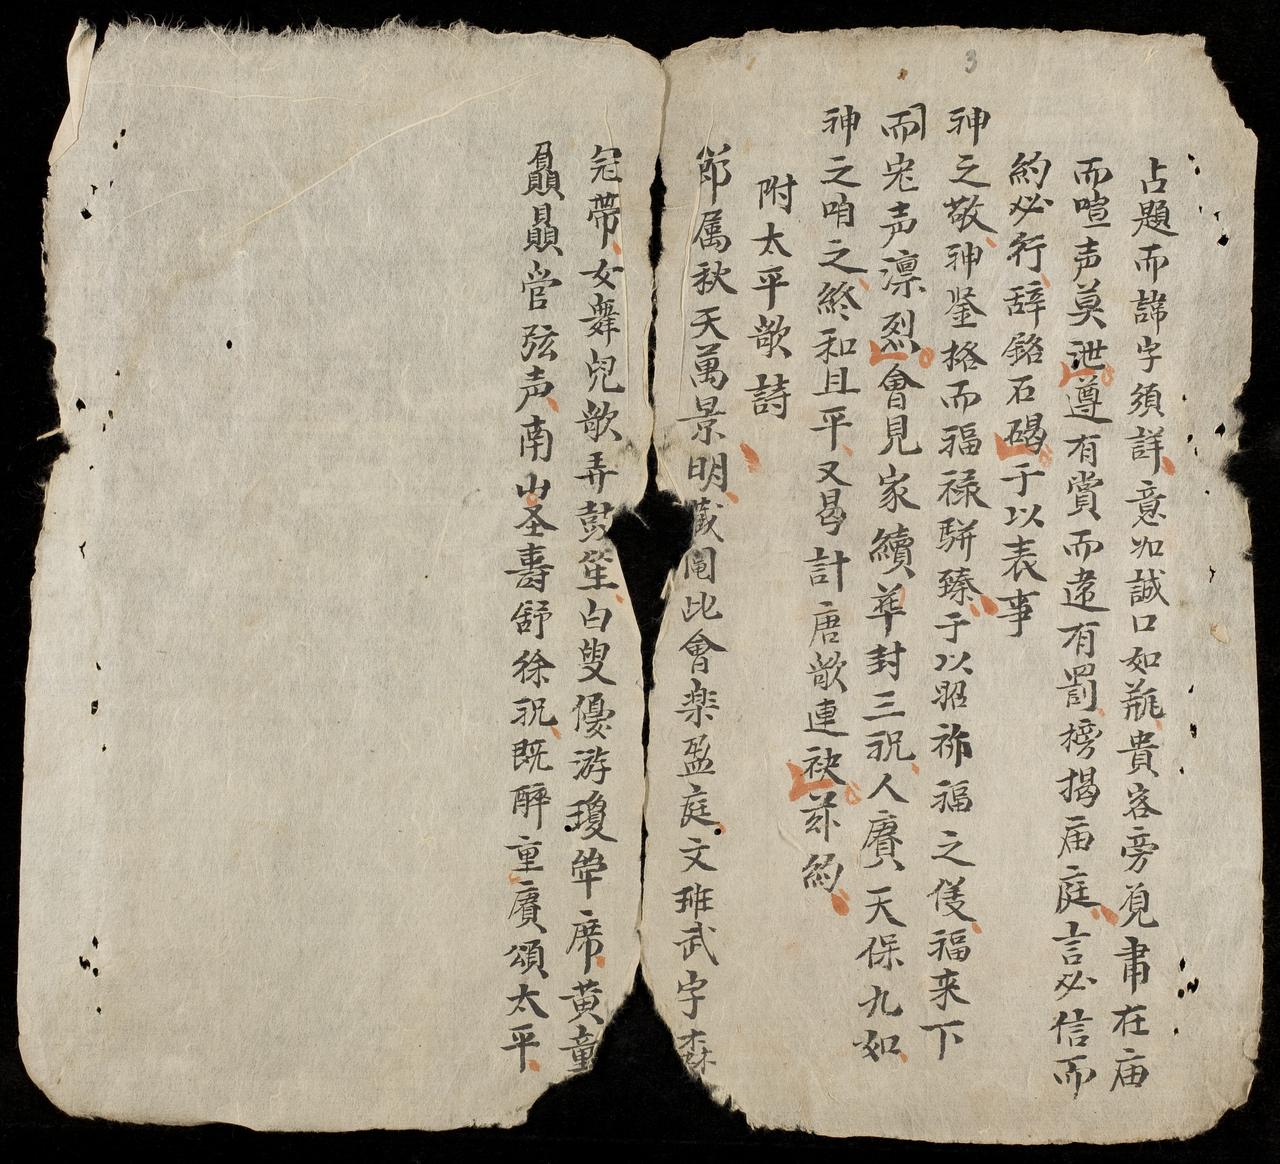 3
占題而諦字須詳意如誠口如瓶貴客旁見肅在庙
而喧声莫泄遵有賞而違有罰榜揭庙庭言必信而
約必行辞銘石碣于以表事
神之敬神鉴格而福禄駢臻于以昭祢福之優福来下
而声凛烈會見家續華封三祝人賡天保九如
神之咱之終和且平又曷計唐歌連袂茲約
附太平歌詩
節属秋天萬景明蔵闱比會楽盈庭文班武字森
冠帯女舞兒歌弄鼓笙白叟優游瓊筵席黄童
贔贔管弦声南山圣壽舒徐祝既醉重賡頌太平